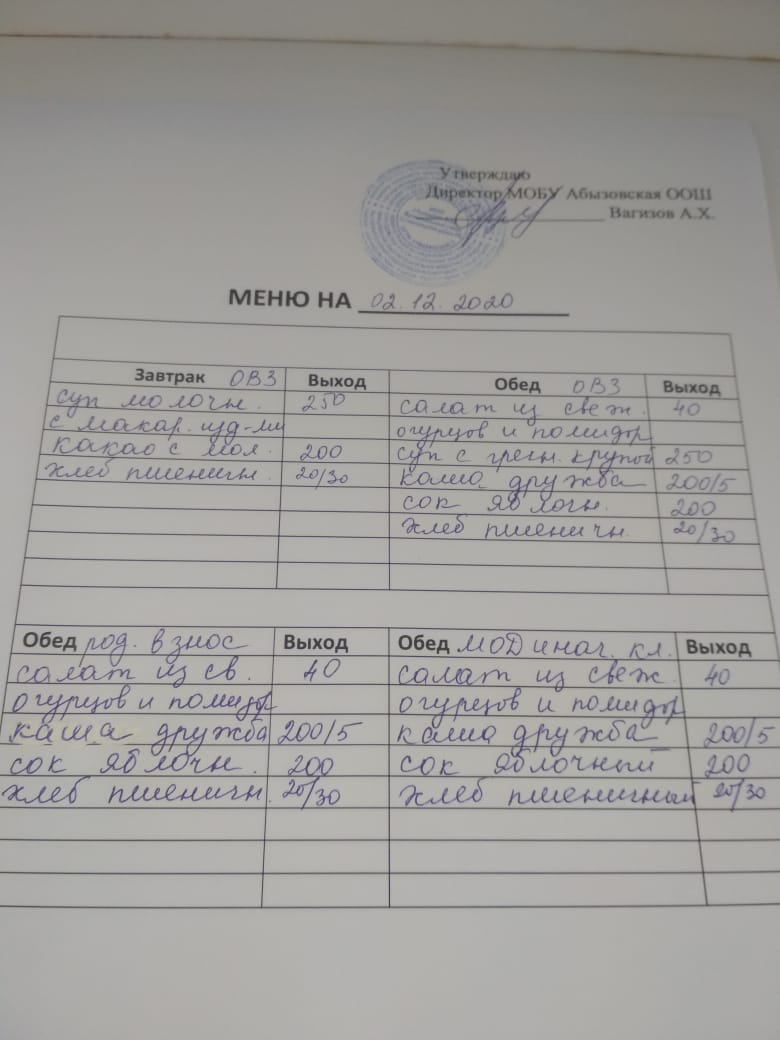 Утверждаю
Директор МОБУ Абызовская ООШ
Вагизов А.Х.
МЕНЮ НА 02.12.2020
Завтрак ОВЗ Выход Обед ОВЗ Выход
суп молочн. 250 салат из свеж. 40
с макар. изд-ми огурцов и помидор
какао с мол. 200 суп с гречн. крупой 250
хлеб пшеничн. 20/30 каша дружба 200/5
сок яблочн. 200
хлеб пшеничн. 20/30
Обед род. взнос Выход Обед МОД и нач. кл. Выход
салат из св. 40 салат из свеж. 40
огурцов и помидор огурцов и помидор
каша дружба 200/5 каша дружба 200/5
сок яблочн. 200 сок яблочный 200
хлеб пшеничн. 20/30 хлеб пшеничный 20/30